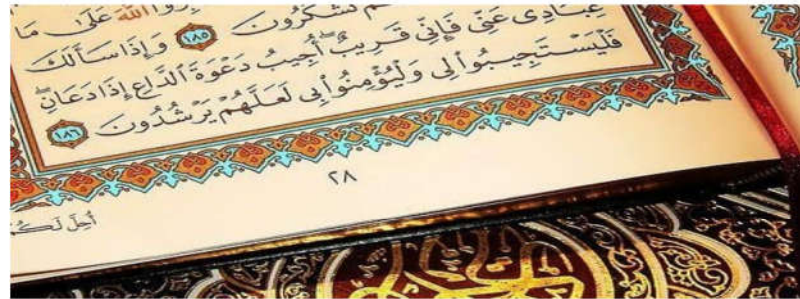 اللَّهَ عَلَىٰ مَا
تَشْكُرُونَ ١٨٥ وَإِذَا سَأَلَكَ
عِبَادِى عَنِّى فَإِنِّى قَرِيبٌ أُجِيبُ دَعْوَةَ ٱلدَّاعِ إِذَا دَعَانِ
فَلْيَسْتَجِيبُوا۟ لِى وَلْيُؤْمِنُوا۟ بِى لَعَلَّهُمْ يَرْشُدُونَ ١٨٦
٢٨
أُحِلَّ